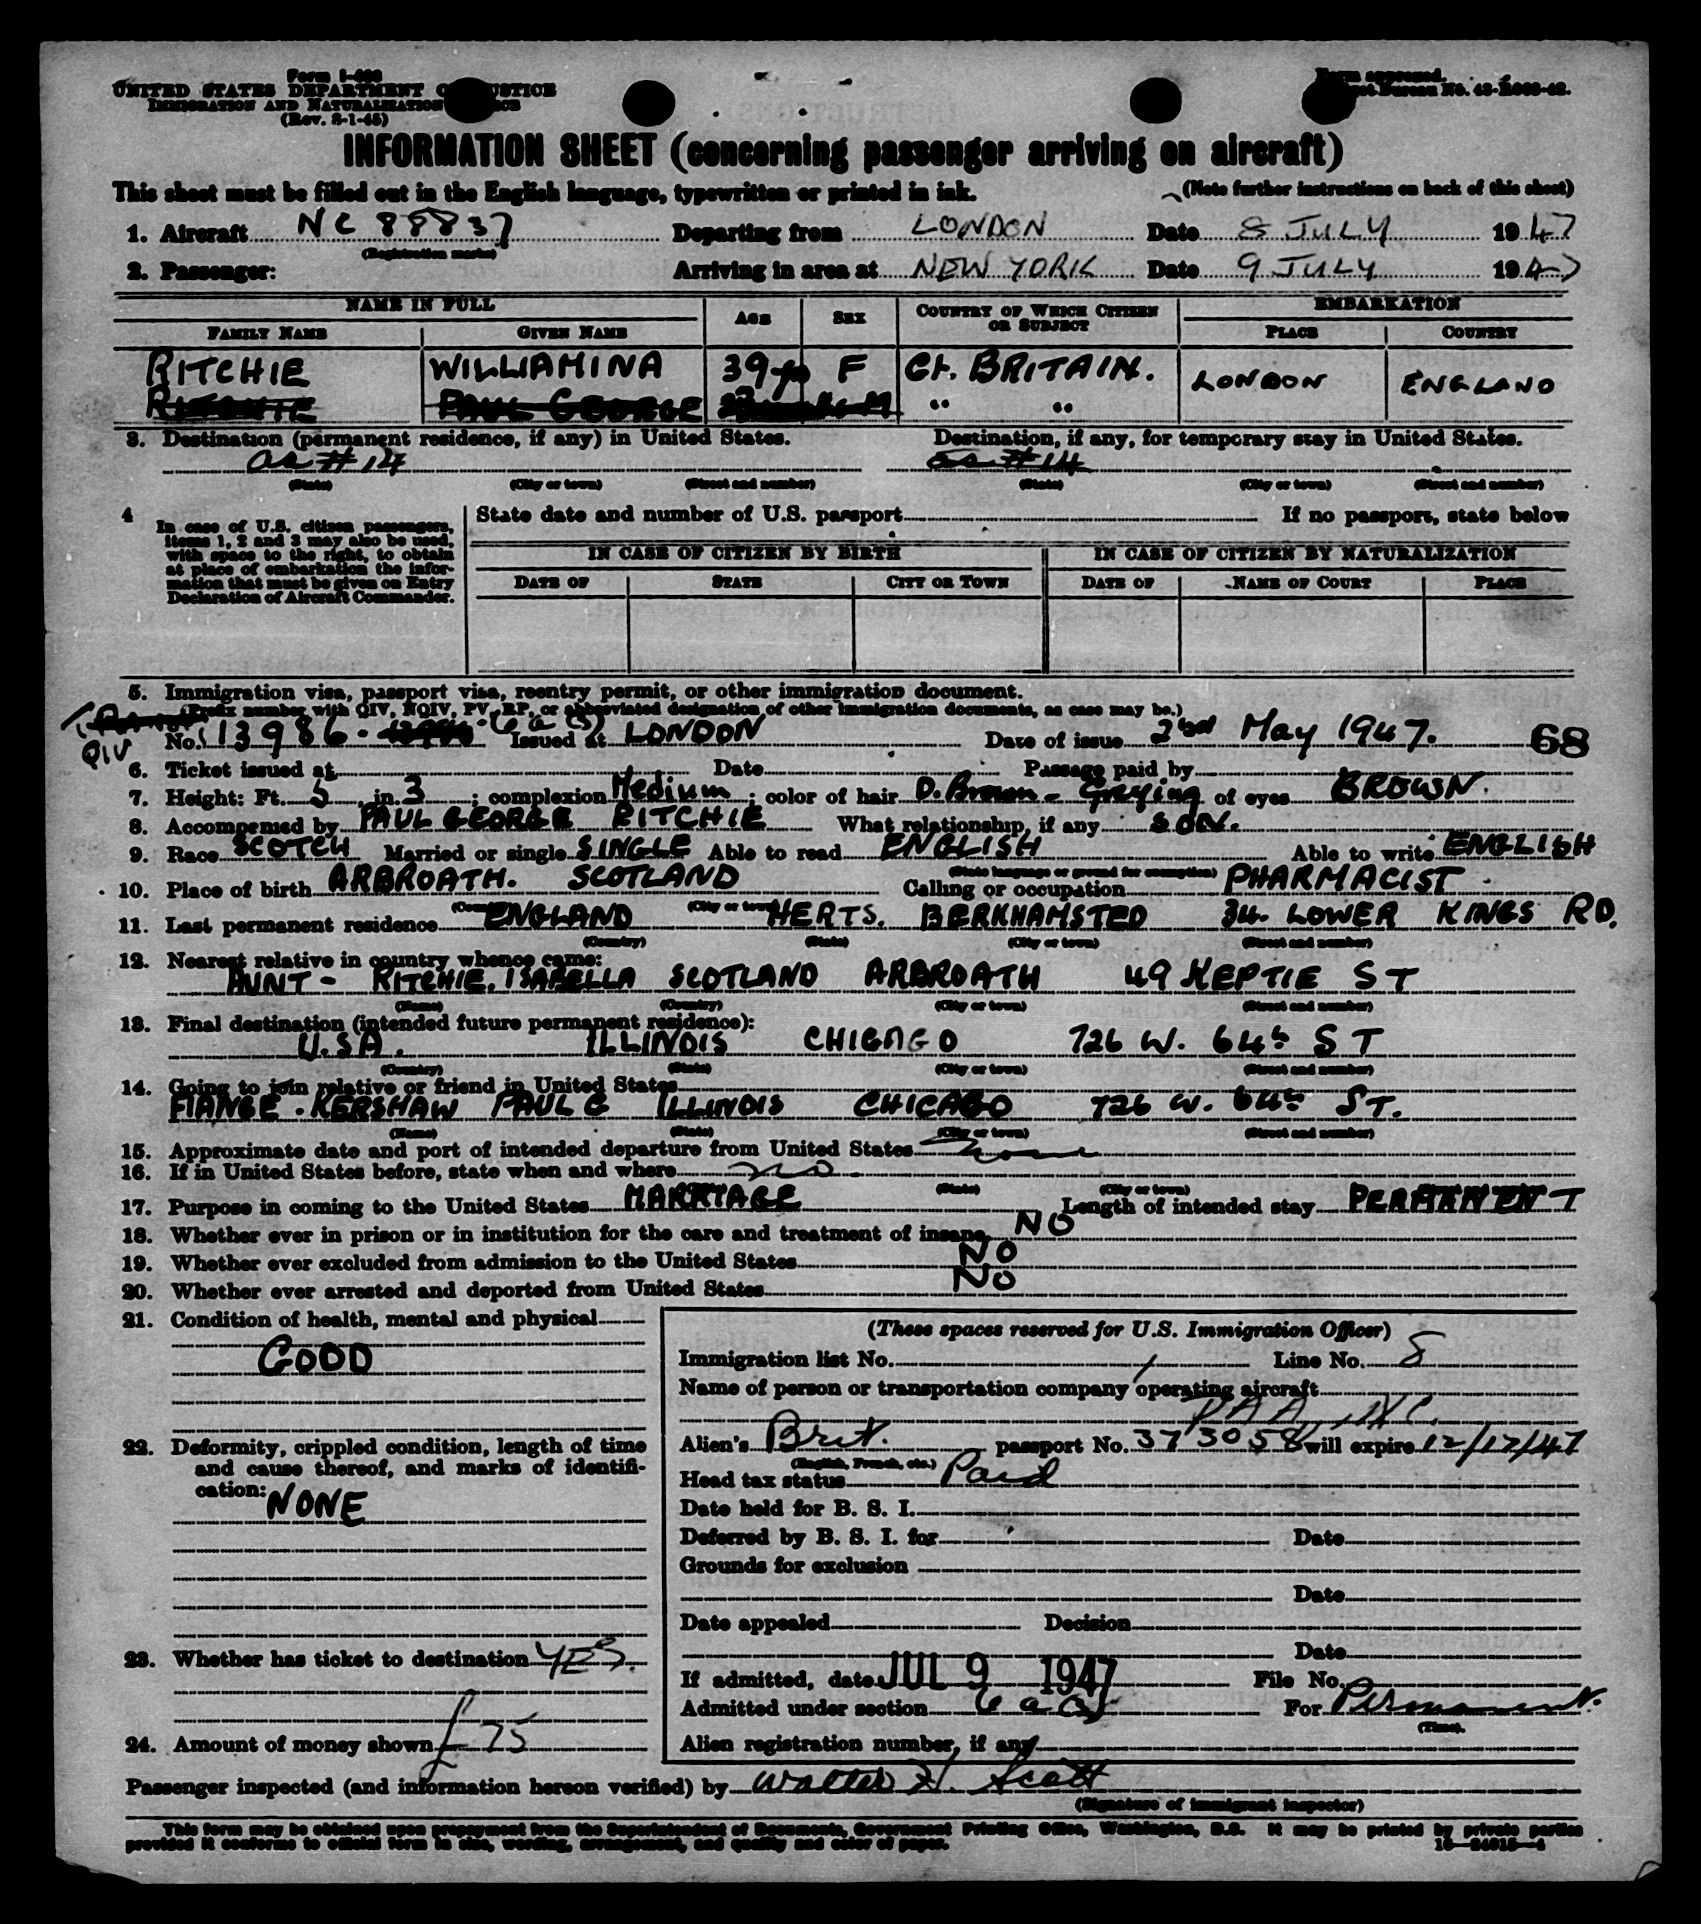 Form I-466
UNITED STATES DEPARTMENT OF JUSTICE
IMMIGRATION AND NATURALIZATION SERVICE
(Rev. 3-1-45)
Form approved.
Budget Bureau No.
INFORMATION SHEET (concerning passenger arriving on aircraft)
This sheet must be filled out in the English language, typewritten or printed in ink. (Note further instructions on back of this sheet)
1. Aircraft NC 88837 Departing from LONDON Date 8 JULY 1947
(Registration marks)
2. Passenger: Arriving in area at NEW YORK Date 9 JULY 1947
NAME IN FULL AGE SEX COUNTRY OF WHICH CITIZEN OR SUBJECT EMBARKATION
FAMILY NAME GIVEN NAME PLACE COUNTRY
RITCHIE WILLIAMINA 39 F Gt. BRITAIN. LONDON ENGLAND
RITCHIE PAUL GEORGE M " "
3. Destination (permanent residence, if any) in United States. Destination, if any, for temporary stay in United States.
as # 14 as # 14
(State) (City or town) (Street and number) (State) (City or town) (Street and number)
4 In case of U.S. citizen passengers, items 1, 2 and 3 may also be used, with space to the right, to obtain at place of embarkation the information that must be given on Entry Declaration of Aircraft Commander.
State date and number of U.S. passport If no passport, state below
IN CASE OF CITIZEN BY BIRTH IN CASE OF CITIZEN BY NATURALIZATION
DATE OF STATE CITY OR TOWN DATE OF NAME OF COURT PLACE
5. Immigration visa, passport visa, reentry permit, or other immigration document.
(Prefix number with QIV, NQIV, PV, RP, or abbreviated designation of other immigration documents, as case may be.)
QIV No. 13986 Issued at LONDON Date of issue 2nd May 1947. 68
6. Ticket issued at Date Passage paid by
7. Height: Ft. 5 in. 3 ; complexion Medium ; color of hair D. Brown - Greying of eyes BROWN.
8. Accompanied by PAUL GEORGE RITCHIE What relationship, if any SON.
9. Race SCOTCH Married or single SINGLE Able to read ENGLISH Able to write ENGLISH
(State language or ground for exemption)
10. Place of birth ARBROATH. SCOTLAND Calling or occupation PHARMACIST
(Country) (City or town)
11. Last permanent residence ENGLAND HERTS. BERKHAMSTED 34. LOWER KINGS RD.
(Country) (State) (City or town) (Street and number)
12. Nearest relative in country whence came:
AUNT - RITCHIE, ISABELLA SCOTLAND ARBROATH 49 KEPTIE ST
(Name) (Country) (City or town) (Street and number)
13. Final destination (intended future permanent residence):
U.S.A. ILLINOIS CHICAGO 726 W. 64th ST
(Country) (State) (City or town) (Street and number)
14. Going to join relative or friend in United States
FIANCE. KERSHAW PAUL G ILLINOIS CHICAGO 726 W. 64th ST.
(Name) (State) (City or town) (Street and number)
15. Approximate date and port of intended departure from United States None
16. If in United States before, state when and where no
(State) (City or town)
17. Purpose in coming to the United States MARRIAGE Length of intended stay PERMANENT
18. Whether ever in prison or in institution for the care and treatment of insane NO
19. Whether ever excluded from admission to the United States NO
20. Whether ever arrested and deported from United States NO
21. Condition of health, mental and physical
GOOD
22. Deformity, crippled condition, length of time and cause thereof, and marks of identification: NONE
23. Whether has ticket to destination YES.
24. Amount of money shown £75
(These spaces reserved for U.S. Immigration Officer)
Immigration list No. 1 Line No. 8
Name of person or transportation company operating aircraft
PAA, INC.
Alien's Brit. passport No. 373058 will expire 12/12/47
(English, French, etc.)
Head tax status Paid
Date held for B. S. I.
Deferred by B. S. I. for Date
Grounds for exclusion
Date
Date appealed Decision
Date
If admitted, date JUL 9 1947 File No.
Admitted under section 6 a (3) For Permanent.
(Time).
Alien registration number, if any
Passenger inspected (and information hereon verified) by Walter H. Scott
(Signature of immigrant inspector)
This form may be obtained upon prepayment from the Superintendent of Documents, Government Printing Office, Washington, D.C. It may be printed by private parties
provided it conforms to official form in size, wording, arrangement, and quality and color of paper.